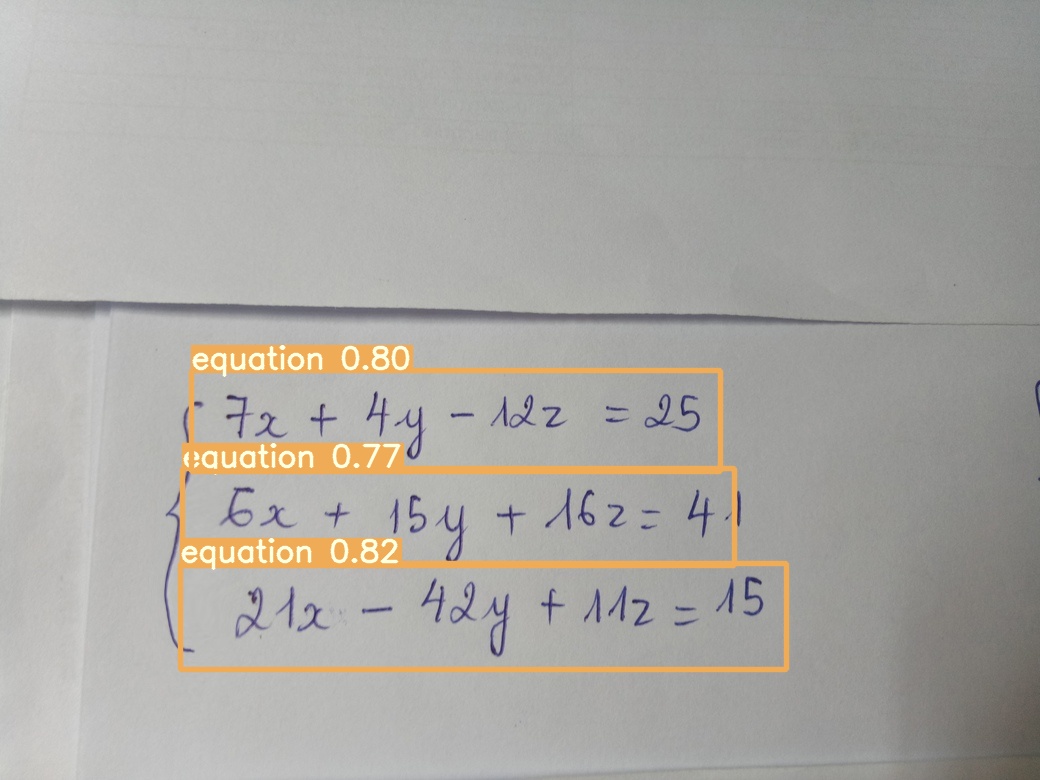 equation 0.80
7x + 4y - 12z = 25
equation 0.77
6x + 15y + 16z = 41
equation 0.82
21x - 42y + 11z = 15